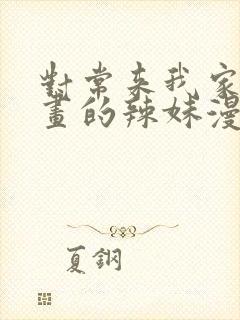 對常來我家
畫的辣妹漫
夏鋼